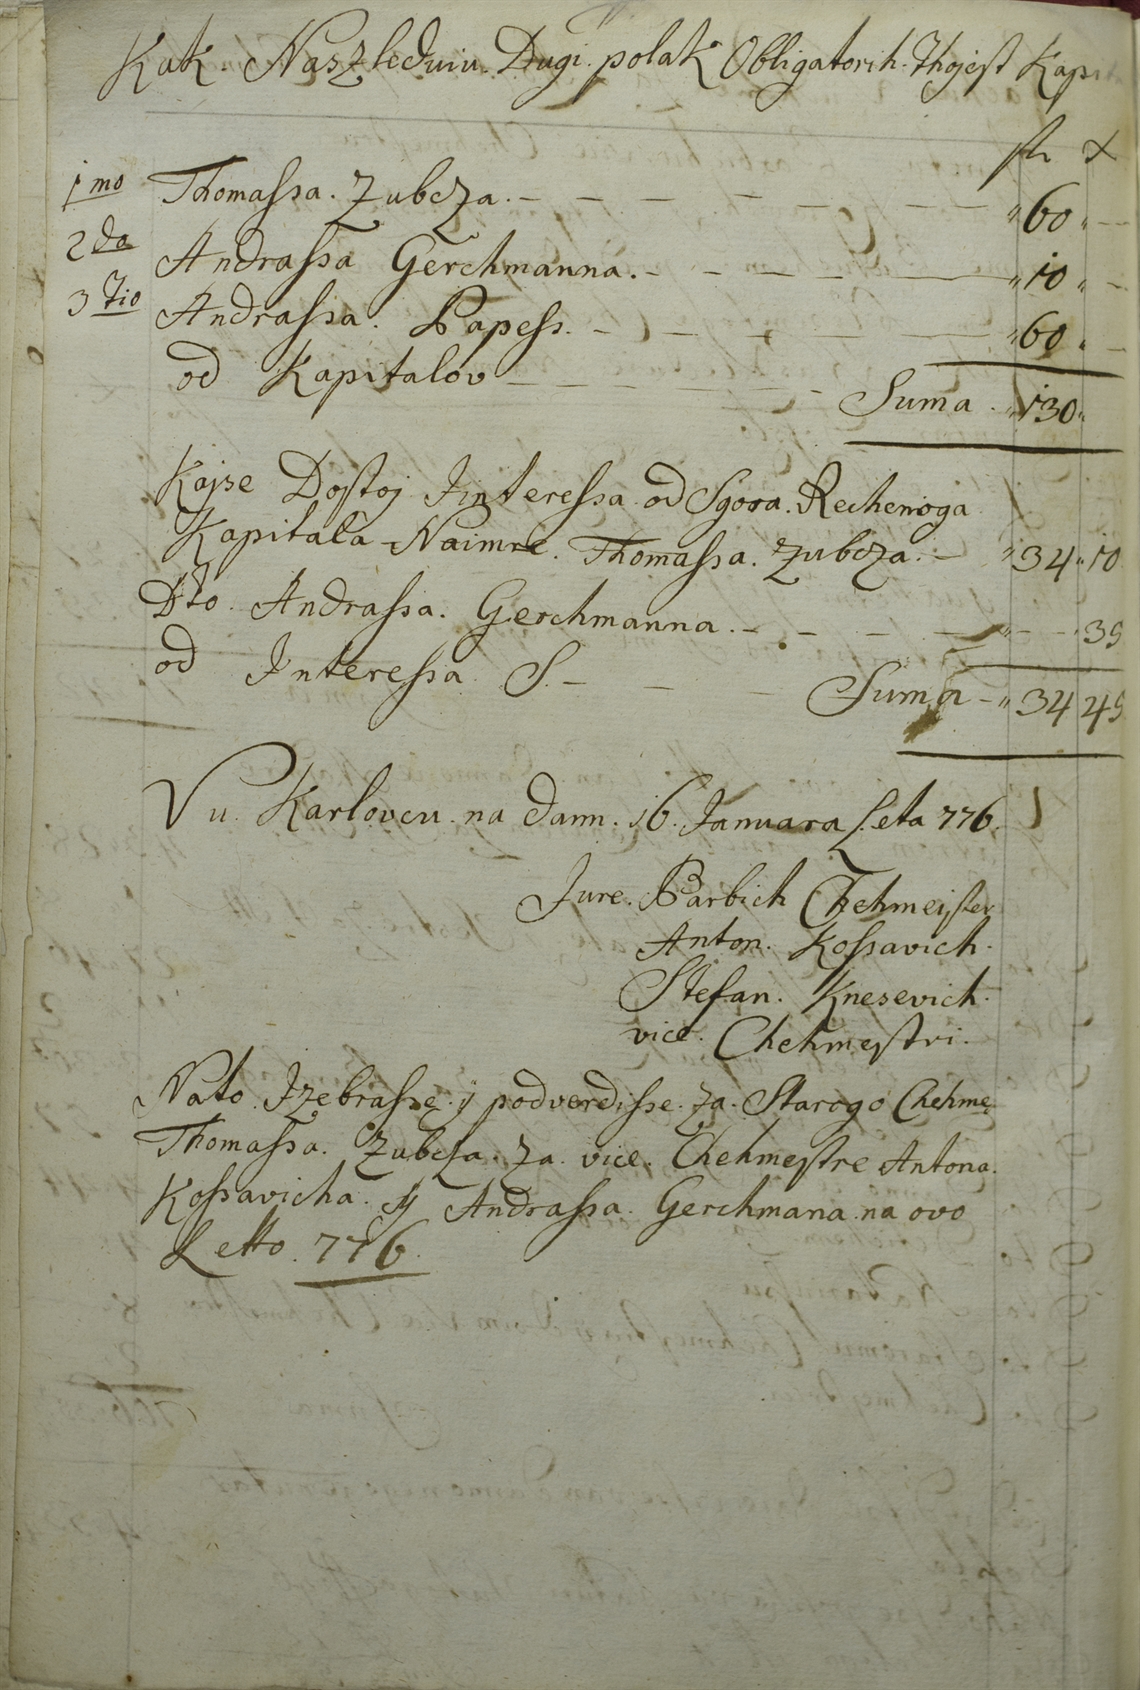 Kak. Naszleduiu. Dugi. polak Obligatorih. Thojest Kapi
fl x
1mo Thomassa. Zubcza. 60
2do Andrassa Gerchmanna. 10
3tio Andrassa. Papess. 60
od Kapitalov Suma 130
Kajse Dostoj Iinteressa od Sgora. Rechenoga
Kapitala Naimre. Thomassa. Zubcza. 34 10
Dto. Andrassa. Gerchmanna. 35
od Interessa S. Suma 34 45
Vu. Karlovcu. na dann. 16. Januara Leta 776.
Jure. Barbich Chehmeister
Anton. Kossavich.
Stefan. Knesevich.
vice. Chehmestri.
Nato Izebrasse. y podverdisse. za. Starogo Chehme
Thomassa. Zubcsa. Za. vice. Chehmestre Antona.
Kossavicha. y Andrassa. Gerchmana. na ovo
Letto. 776.